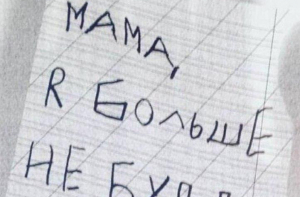 МАМА,
Я БОЛЬШЕ
НЕ